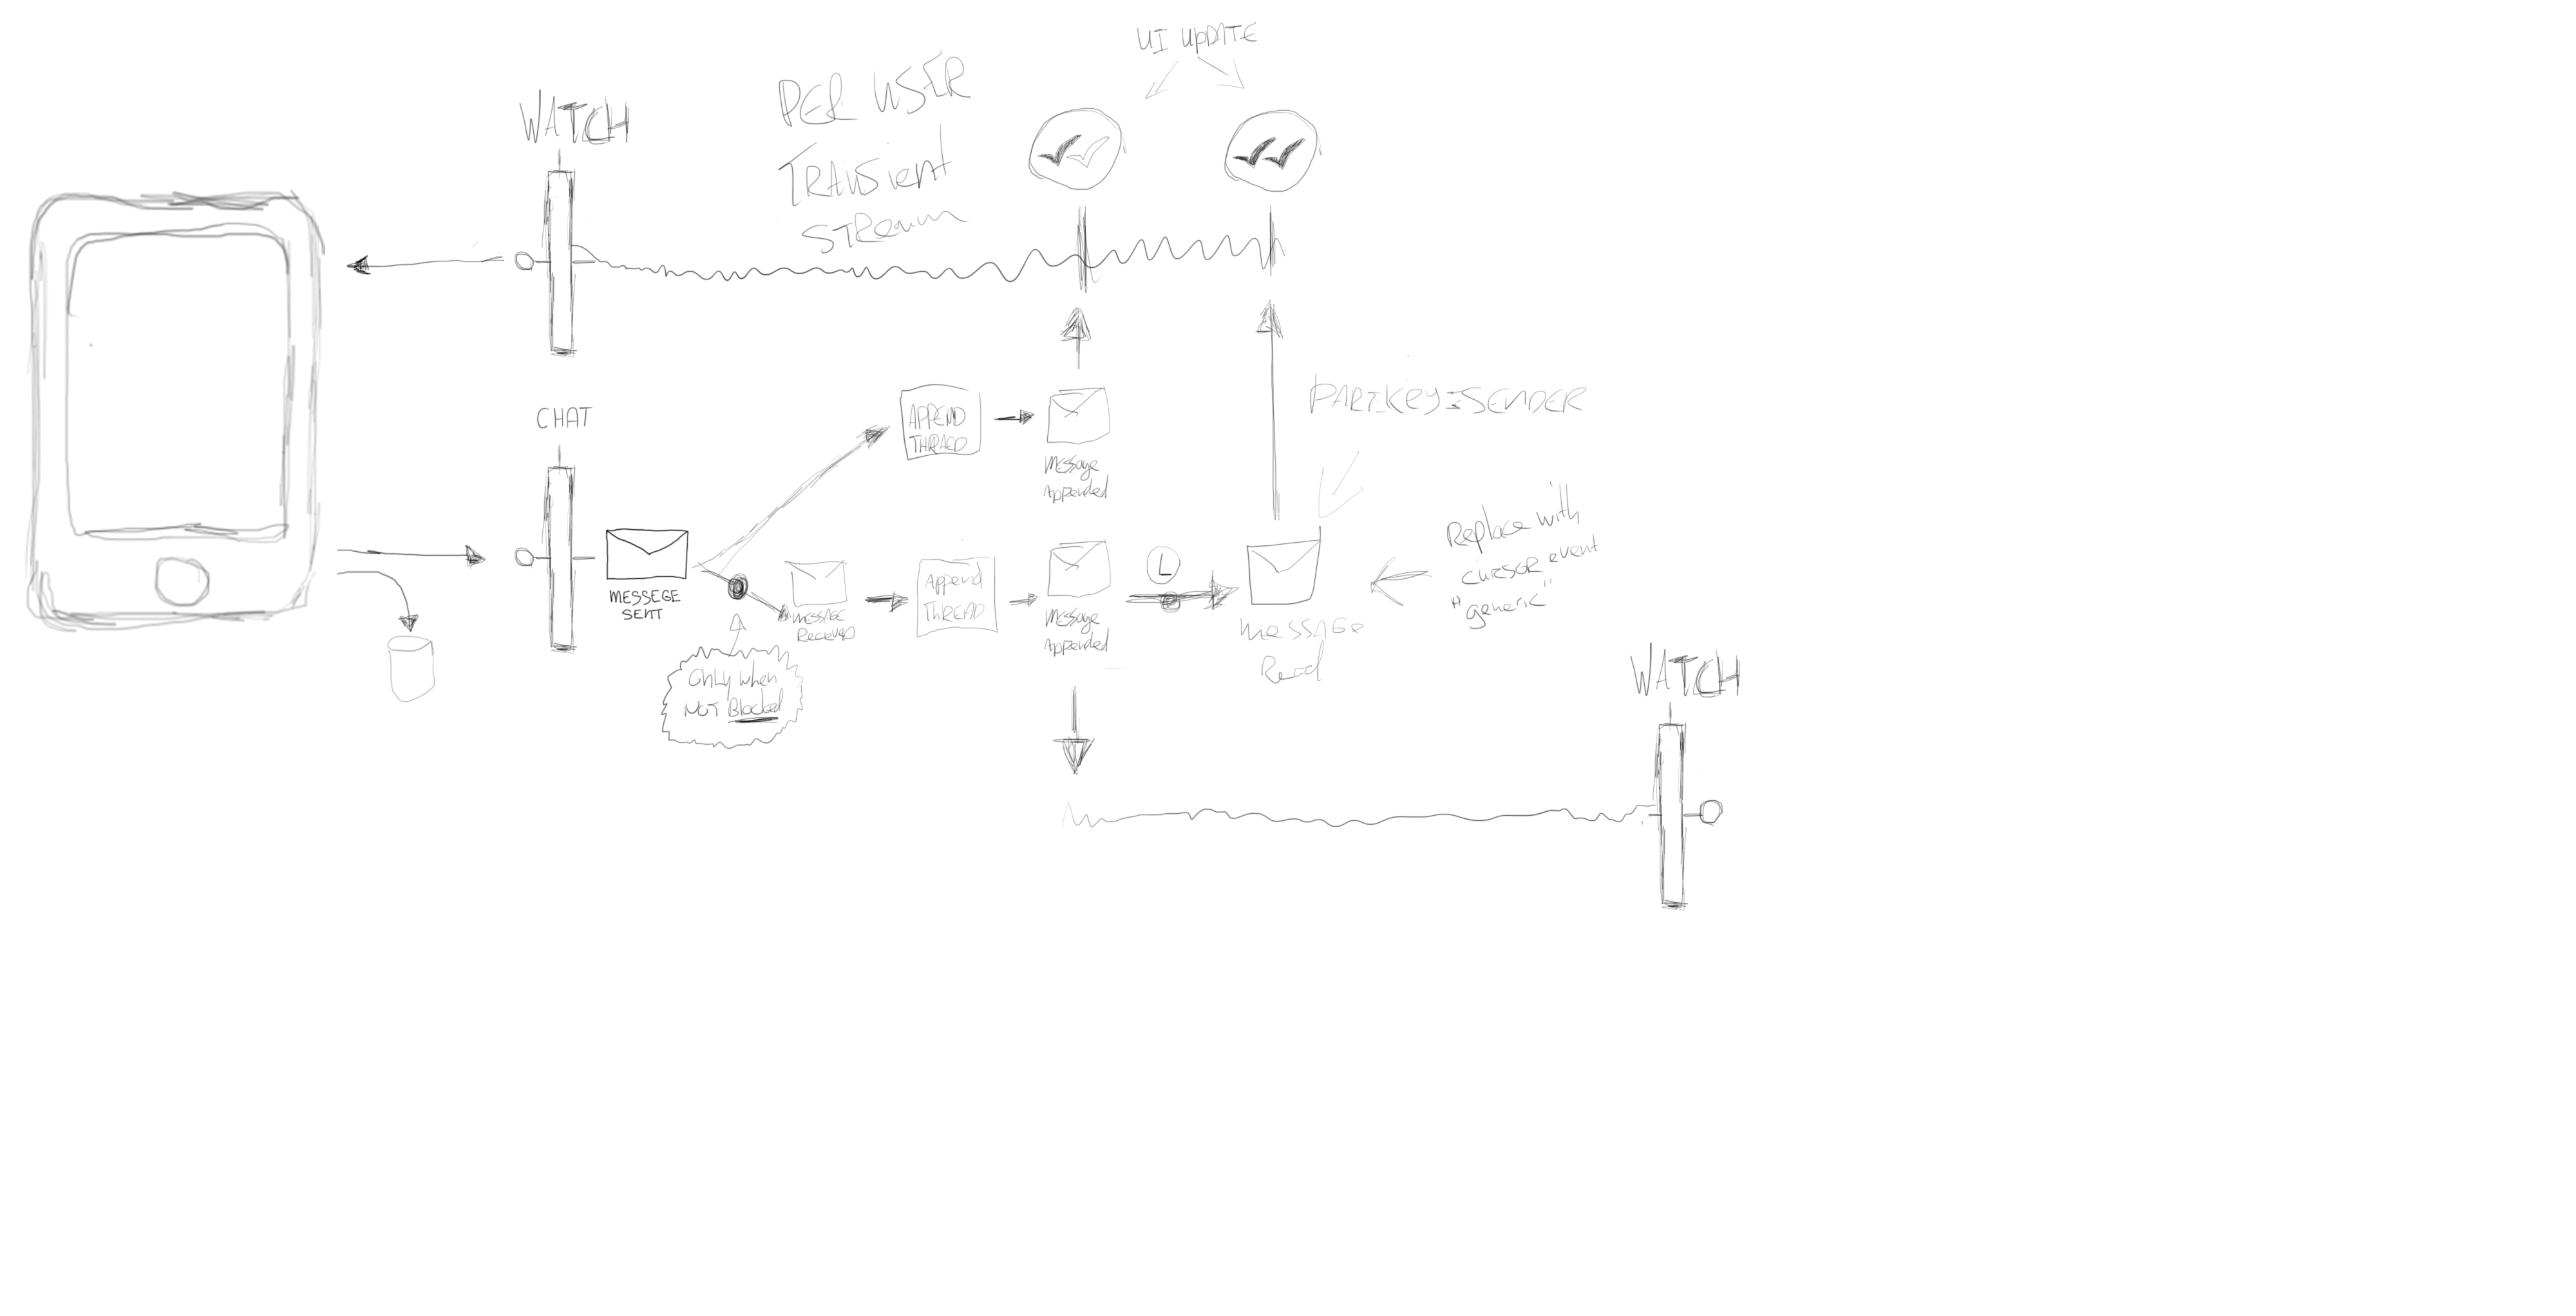 UI UPDATE
WATCH
PER USER
TRANSient
STReam
CHAT
APPEND
THREAD
Message
Appended
PARTKey=SENDER
MESSEGE
SENT
MESSAGE
Received
Append
THREAD
Message
Appended
L
MESSAGE
Read
Replace with
CURSOR event
"generic"
Only when
NOT Blocked
WATCH